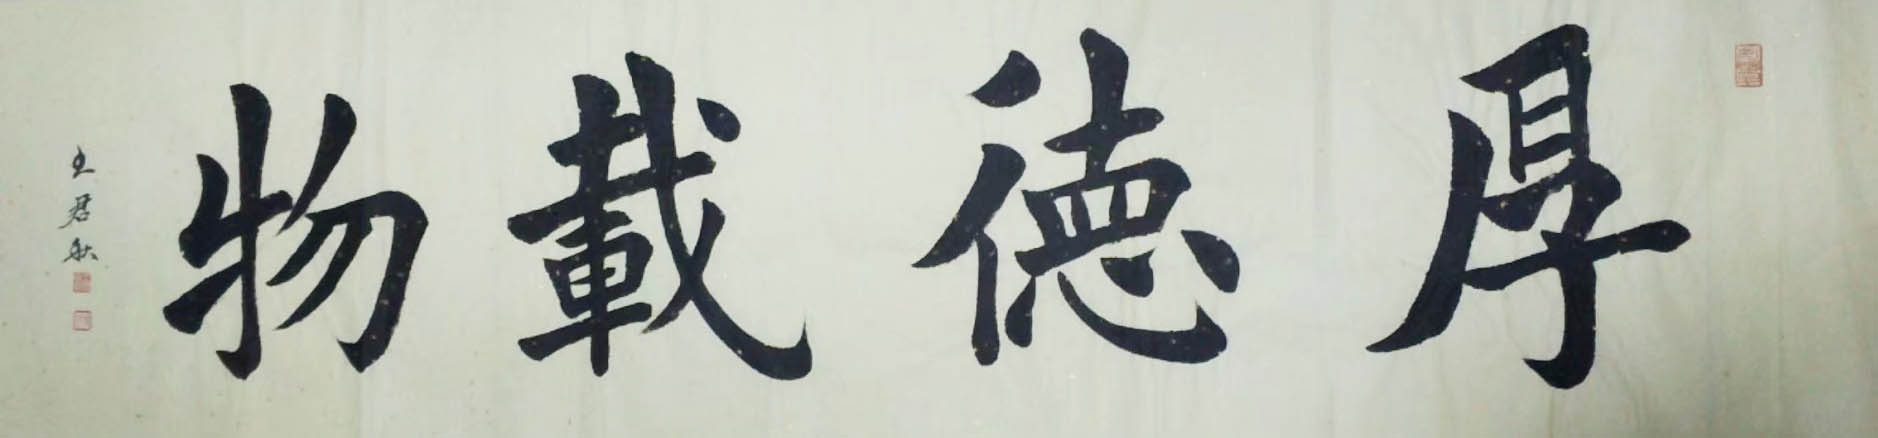 厚德載物
王君秋